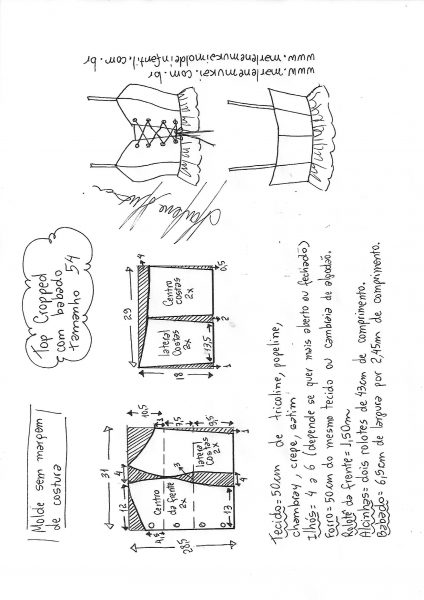 www.marlenemukai.com.br
www.marlenemukaimoldeinfantil.com.br
Top Cropped
com babado
tamanho 54
Molde sem margem
de costura
31
12
4
4
10,5
7,5
9,5
1
3
Centro
da frente
2x
lateral
Costas
2x
28,5
4,5
13
4
1
29
4
18
lateral
Costas
2x
Centro
costas
2x
13,5
1
2
0,5
Tecido=50cm de tricoline, popeline,
chambray, crepe, satim
Ilhós= 4 a 6 (depende se quer mais aberto ou fechado)
Forro=50cm do mesmo tecido ou cambraia de algodão.
Rolotê da frente=1,50m
Alcinhas= dois rolotes de 43cm de comprimento.
Babado= 6,5cm de largura por 2,45m de comprimento.